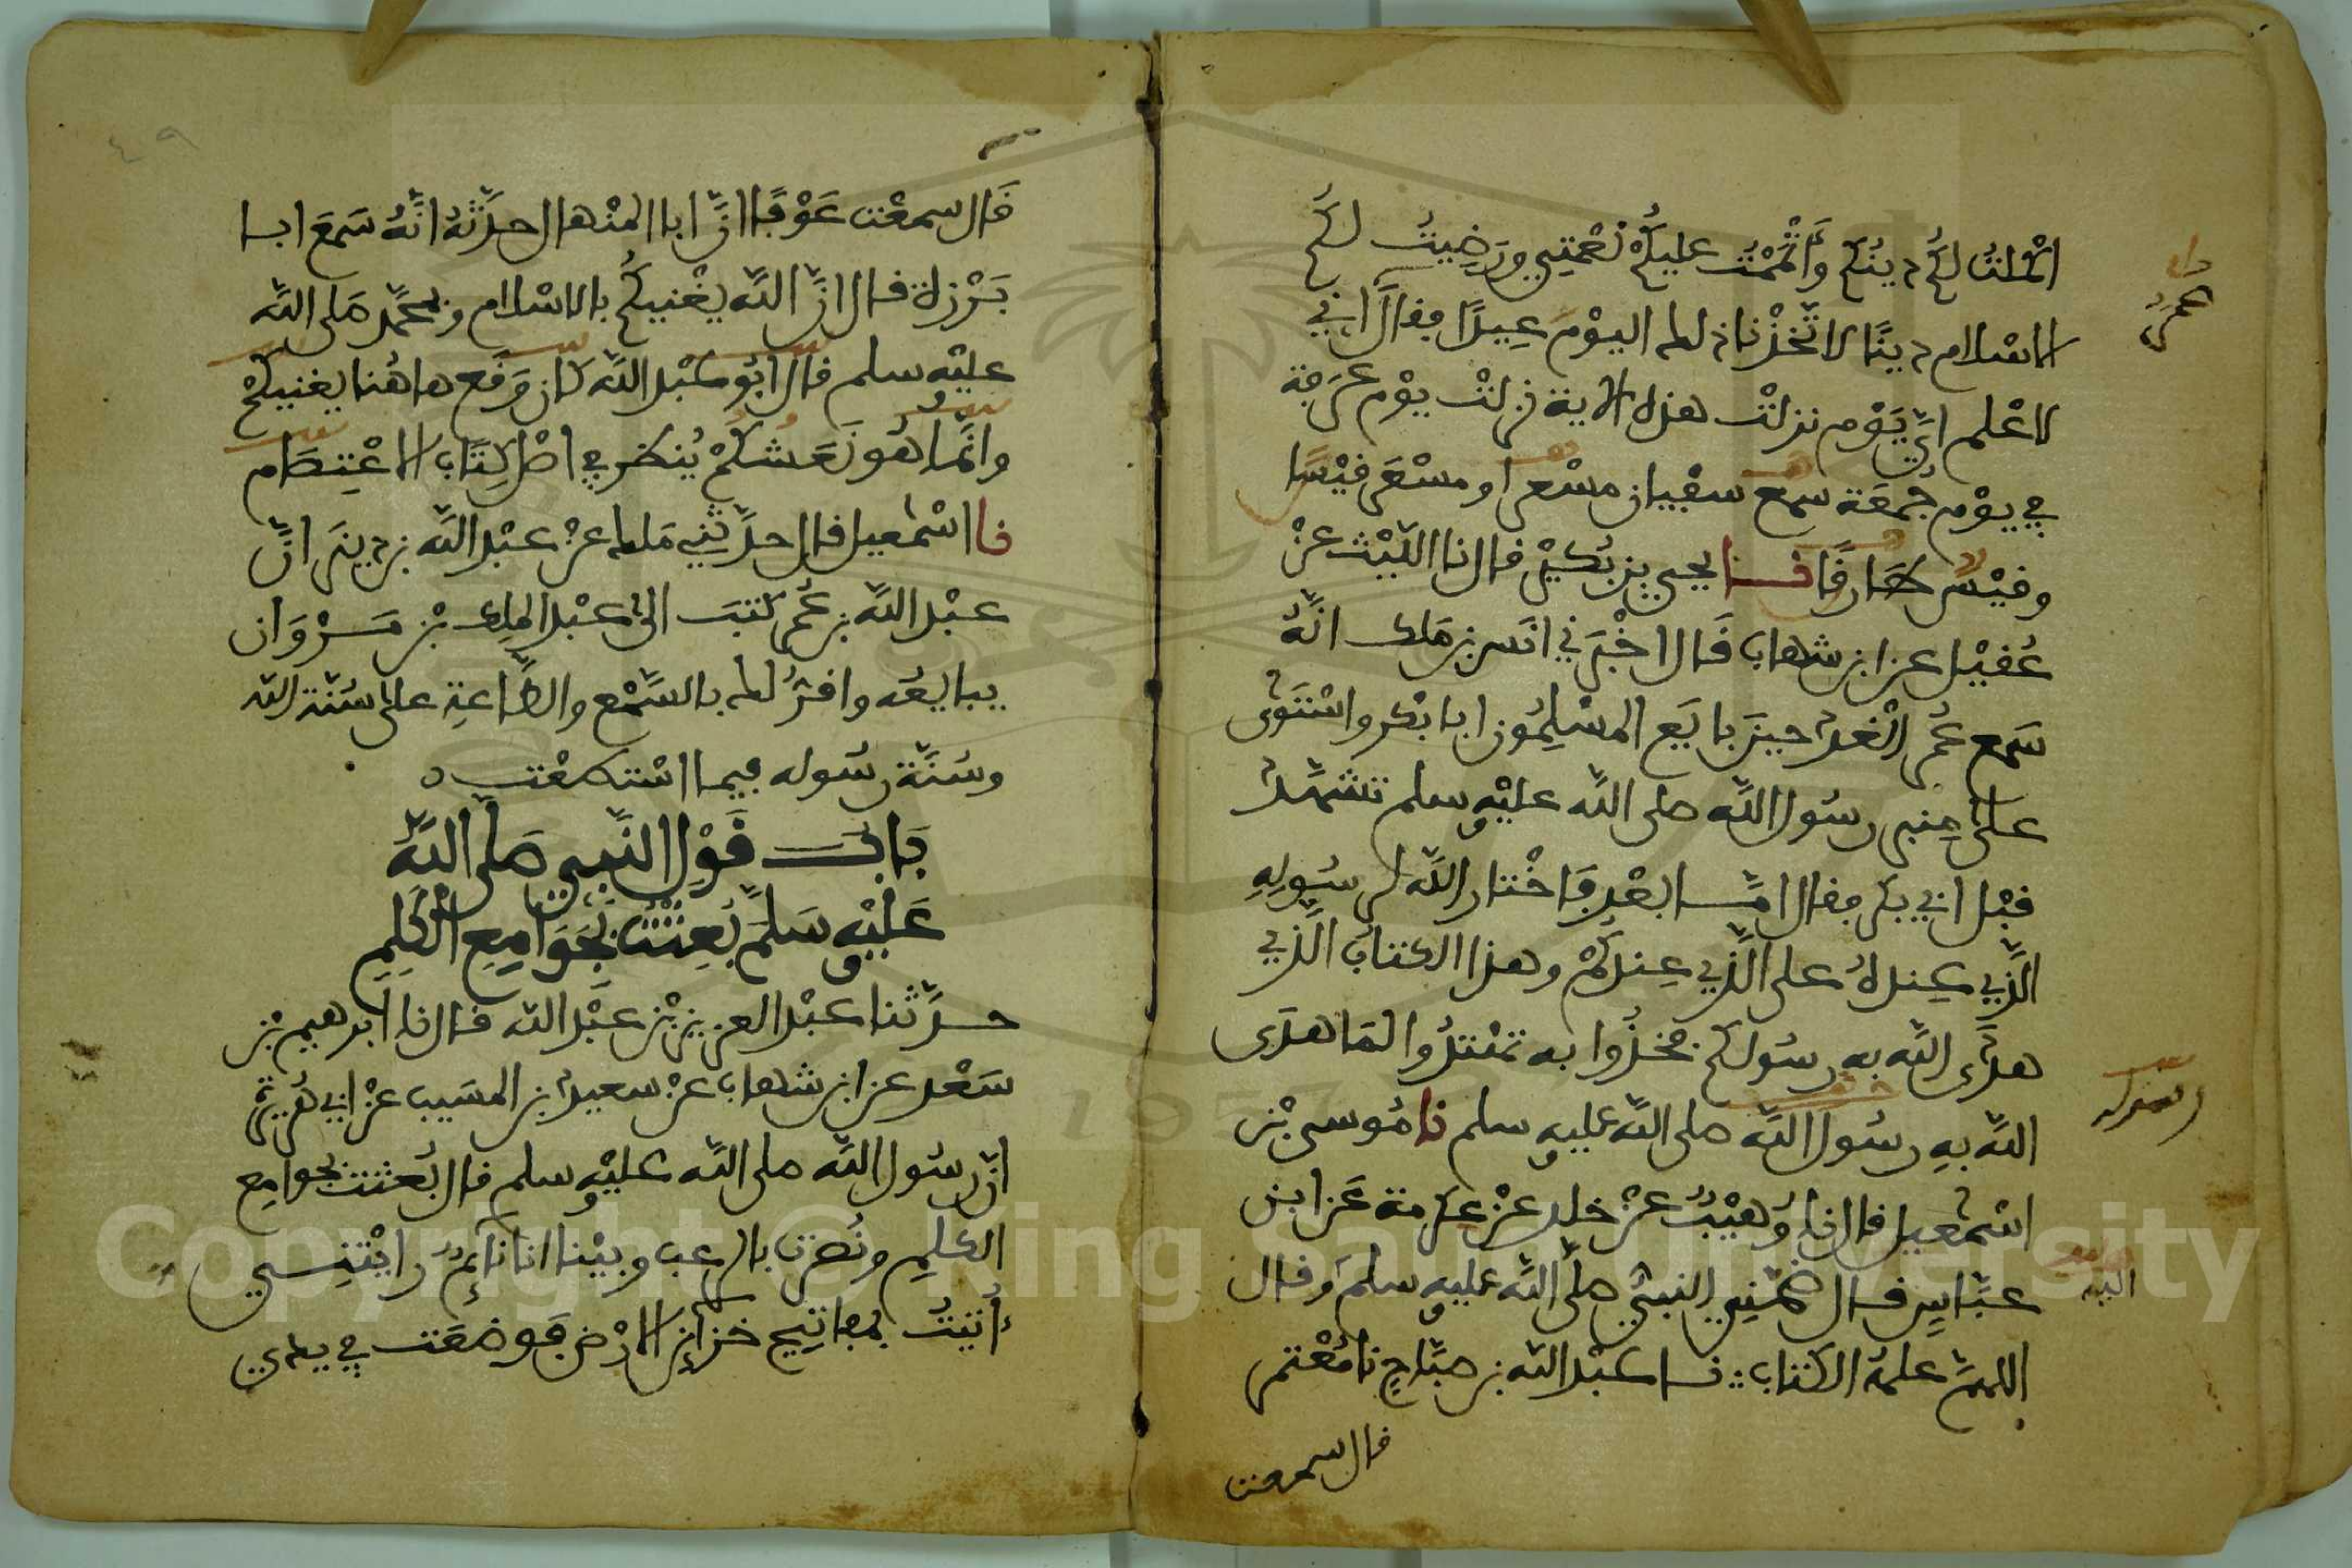 اكملت لكم دينكم وأتممت عليكم نعمتي ورضيت لكم
الاسلام دينا لاتخذنا ذلك اليوم عيدا فقال اني
لاعلم اي يوم نزلت هذه الاية نزلت يوم عرفة
في يوم جمعة سمع سفيان مسعرا ومسعر قيسا
وقيس طارقا نا يحيى بن بكير قال نا الليث عن
عقيل عن ابن شهاب قال اخبرني انس بن ملك انه
سمع عمر الغد حين بايع المسلمون ابا بكر واستوى
على منبر رسول الله صلى الله عليه وسلم تشهد
قبل ابي بكر فقال امّا بعد فاختار الله لرسوله
الذي عنده على الذي عندكم وهذا الكتاب الذي
هدى الله به رسولكم فخذوا به تهتدوا لما هدى
الله به رسول الله صلى الله عليه وسلم نا موسى بن
اسمعيل قال نا وهيب عن خلد عن عكرمة عن ابن
عبّاس قال ضمّني النبي صلى الله عليه وسلم وقال
اللهم علمه الكتاب نا عبد الله بن صباح نا معتمر
قال سمعت
عمر
رسوله
اليه
٤٩
قال سمعت عوفا انّ ابا المنهال حدّثه انّه سمع ابا
برزة قال انّ الله يغنيكم بالاسلام وبمحمّد صلى الله
عليه وسلم قال ابو عبد الله كان وقع هاهنا يغنيكم
وانّما هو نعشكم ينظر في اصل كتاب الاعتصام
نا اسمعيل قال حدّثني ملك عن عبد الله بن دينر انّ
عبد الله بن عمر كتب الى عبد الملك بن مروان
يبايعه واقرّ لك بالسّمع والطّاعة على سنة الله
وسنّة رسوله فيما استطعت ه
باب قول النّبي صلى الله
عليه وسلم بعثت بجوامع الكلم
حدّثنا عبد العزيز بن عبد الله قال نا ابرهيم بن
سعد عن ابن شهاب عن سعيد بن المسيب عن ابي هريرة
انّ رسول الله صلى الله عليه وسلم قال بعثت بجوامع
الكلم ونصرت بالرعب وبينا انا نائم رايتني
أتيت بمفاتيح خزائن الارض فوضعت في يدي
Copyright © King Saud University
1957